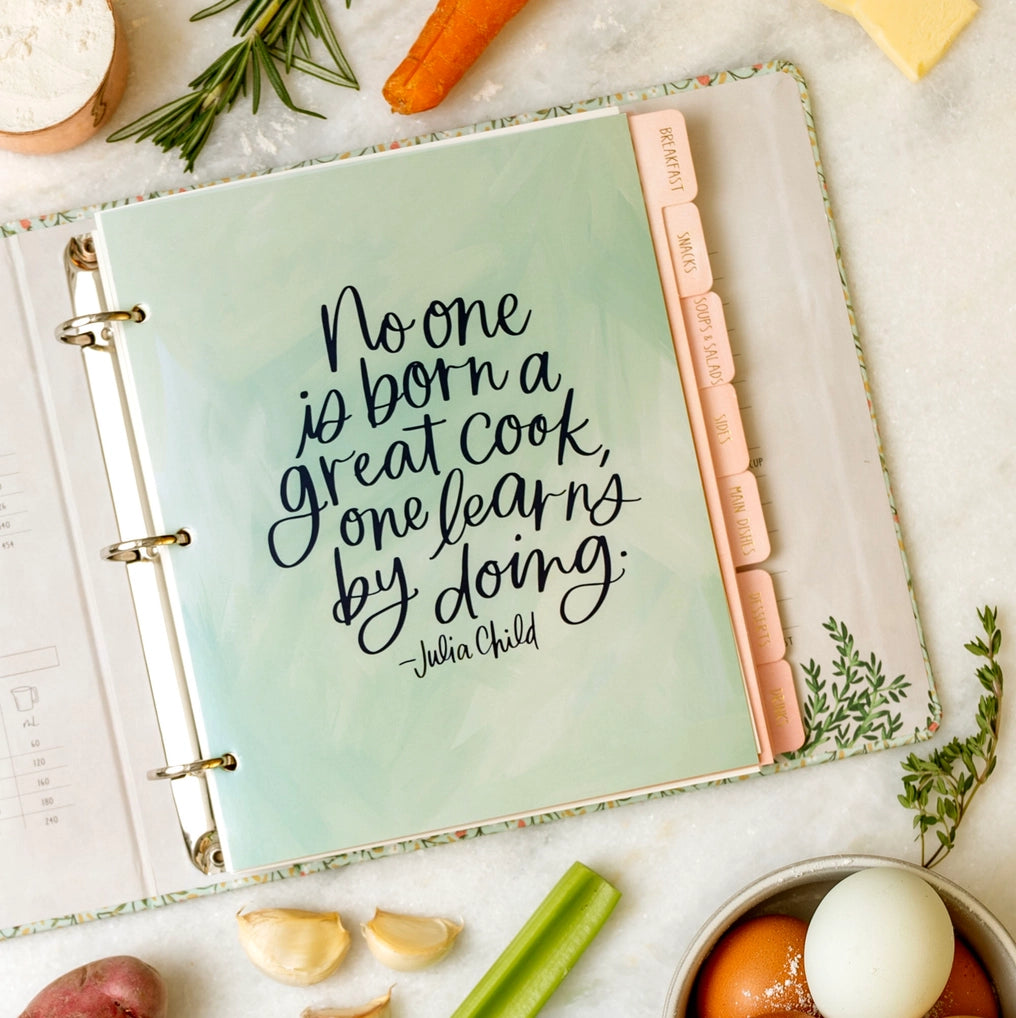 No one
is born a
great cook,
one learns
by doing.
-Julia Child
BREAKFAST
SNACKS
SOUPS & SALADS
SIDES
MAIN DISHES
DESSERTS
DRINKS
mL
60
120
160
180
240
454